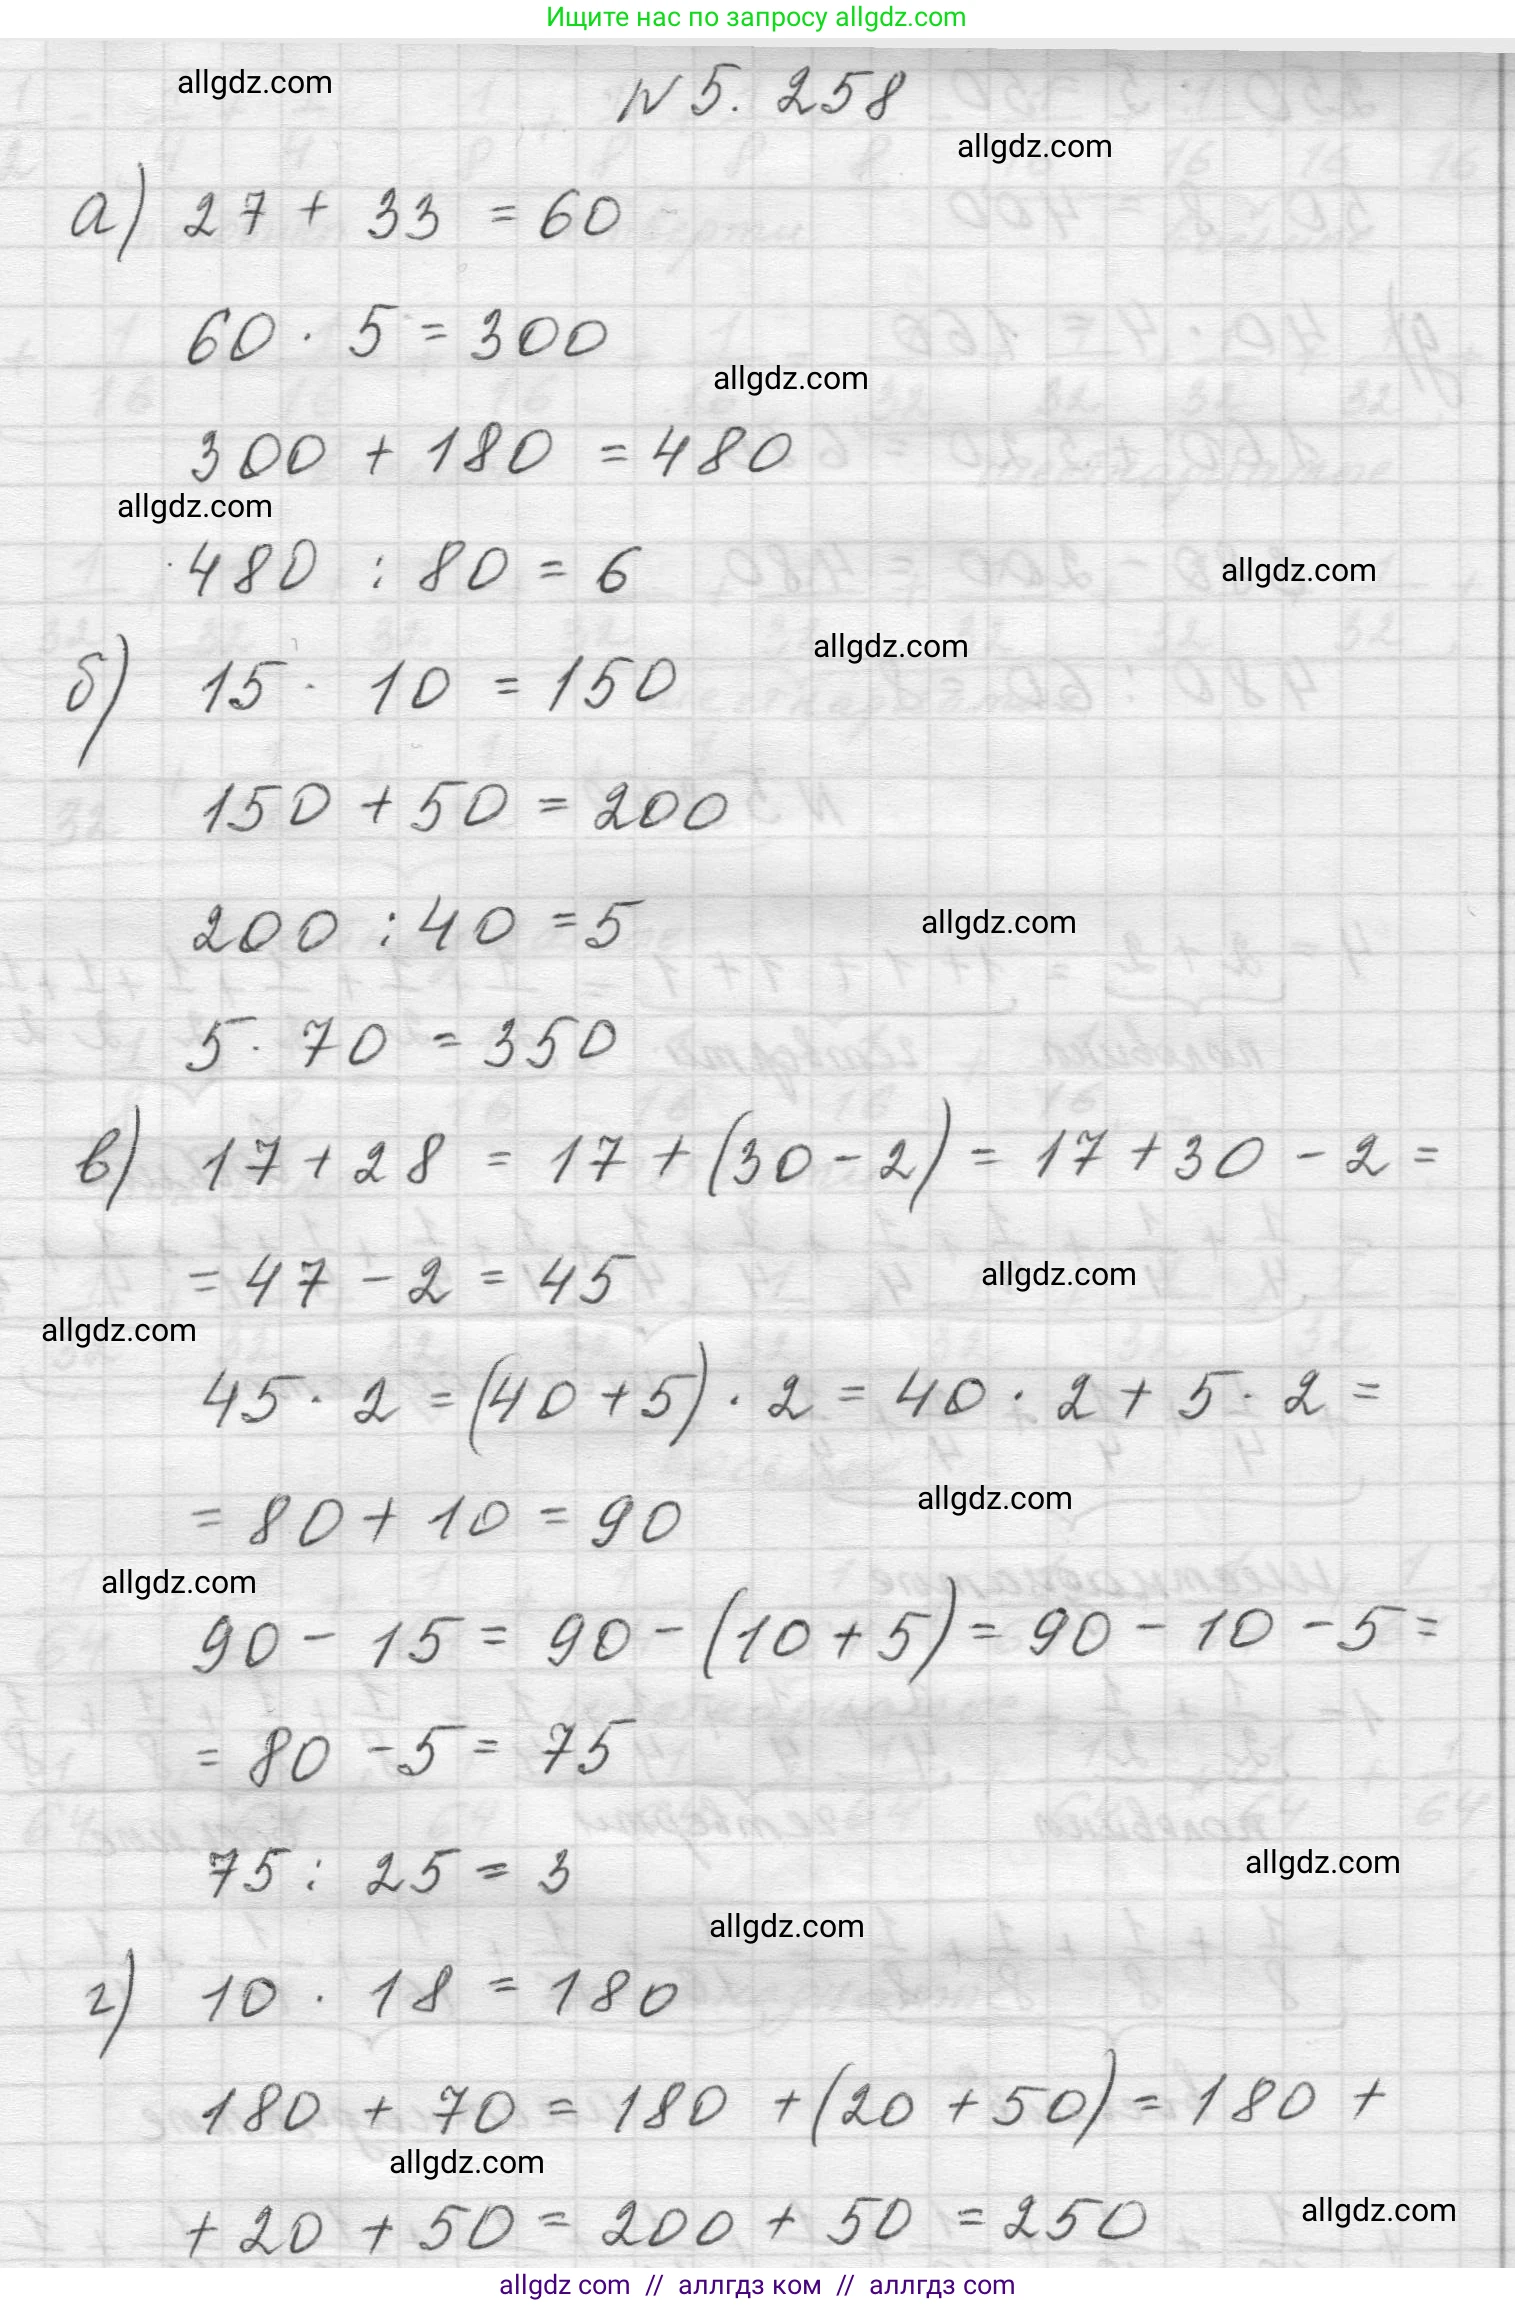 Ищите нас по запросу allgdz.com
allgdz.com
N 5. 258
allgdz.com
а) 27 + 33 = 60
60 · 5 = 300
allgdz.com
300 + 180 = 480
allgdz.com
480 : 80 = 6
allgdz.com
allgdz.com
б) 15 · 10 = 150
150 + 50 = 200
200 : 40 = 5
allgdz.com
5 · 70 = 350
в) 17 + 28 = 17 + (30 - 2) = 17 + 30 - 2 =
= 47 - 2 = 45
allgdz.com
allgdz.com
45 · 2 = (40 + 5) · 2 = 40 · 2 + 5 · 2 =
= 80 + 10 = 90
allgdz.com
allgdz.com
90 - 15 = 90 - (10 + 5) = 90 - 10 - 5 =
= 80 - 5 = 75
75 : 25 = 3
allgdz.com
allgdz.com
г) 10 · 18 = 180
180 + 70 = 180 + (20 + 50) = 180 +
allgdz.com
+ 20 + 50 = 200 + 50 = 250
allgdz.com
allgdz.com // аллгдз ком // аллгдз com